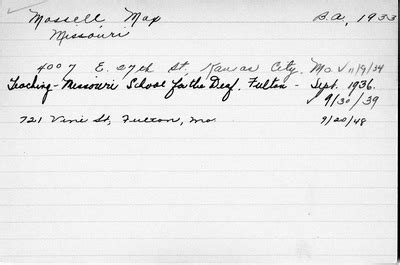 Mossell Max B.A, 1933
Missouri
4007 E. 27th St, Kansas City, Mo. ✓ 11/9/34
Teaching - Missouri School for the Deaf, Fulton - Sept. 1936.
✓ 9/30/39
721 Vine St, Fulton, Mo 9/20/48